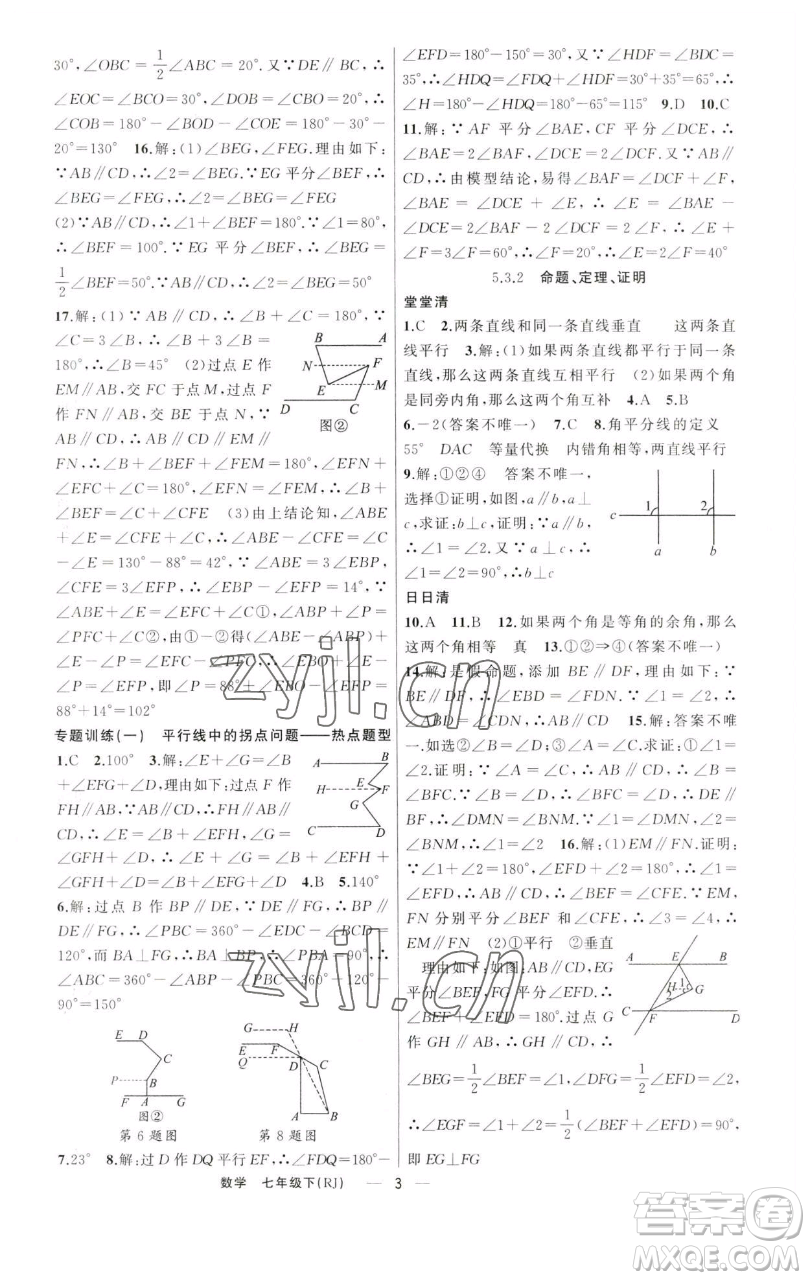 30°,∠OBC=1/2∠ABC=20°.又∵DE∥BC,∴
∠EOC=∠BCO=30°,∠DOB=∠CBO=20°,∴
∠COB=180°-∠BOD-∠COE=180°-30°-
20°=130° 16.解:(1)∠BEG,∠FEG.理由如下:
∵AB∥CD,∴∠2=∠BEG.∵EG平分∠BEF,∴
∠BEG=∠FEG,∴∠2=∠BEG=∠FEG
(2)∵AB∥CD,∴∠1+∠BEF=180°.∵∠1=80°,
∴∠BEF=100°.∵EG平分∠BEF,∴∠BEG=
1/2∠BEF=50°.∵AB∥CD,∴∠2=∠BEG=50°
17.解:(1)∵AB∥CD,∴∠B+∠C=180°,∵
∠C=3∠B,∴∠B+3∠B=
180°,∴∠B=45° (2)过点E作
EM∥AB,交FC于点M,过点F
作FN∥AB,交BE于点N,∵
AB∥CD,∴AB∥CD∥EM∥
FN,∴∠B+∠BEF+∠FEM=180°,∠EFN+
∠EFC+∠C=180°,∠EFN=∠FEM,∴∠B+
∠BEF=∠C+∠CFE (3)由上结论知,∠ABE
+∠BEF=∠EFC+∠C.∵∠BEF=88°,∴∠ABE
-∠C=∠E=130°-88°=42°,∵∠ABE=3∠EBP,
∠CFE=3∠EFP,∴∠EBP-∠EFP=14°,∵
∠ABE+∠E=∠EFC+∠C①,∠ABP+∠P=
∠PFC+∠C②,由①-②得(∠ABE-∠ABP)+
∠E-∠P=∠EFC-∠PFC,∴∠EBO+∠BEF=
∠P+∠EFP,即∠P=88°+∠EBP-∠EFP=
88°+14°=102°
专题训练(一) 平行线中的拐点问题——热点题型
1.C 2.100° 3.解:∠E+∠G=∠B
+∠EFG,理由如下:过点F作
FH∥AB,∵AB∥CD,∴FH∥AB∥
CD,∴∠E=∠EFH+∠B,∠G=
∠GFH+∠D,∴∠E+∠G=∠B+∠EFH+
∠GFH+∠D=∠B+∠EFG+∠D 4.B 5.140°
6.解:过点B作BP∥DE,∵DE⊥GF,∠BCD=
120°,∴∠PBC=360°-∠C-∠CDE=360°-120°-
120°,而BA⊥FG,∴BA⊥BP,∴∠PBA=90°,∴
∠ABC=360°-∠ABP-∠PBC=360°-120°-
90°=150°
图②
图②
第6题图 第8题图
7.23° 8.解:过D作DQ平行EF,∴∠FDQ=180°-
∠EFD=180°-150°=30°.又∵∠HDF=∠BDC=
35°,∴∠HDQ=∠FDQ+∠HDF=30°+35°=65°,∴
∠H=180°-∠HDQ=180°-65°=115° 9.D 10.C
11.解:∵AF平分∠BAE,CF平分∠DCE,∴
∠BAE=2∠BAF,∠DCE=2∠DCF,∵AB∥
CD,∴由模型结论,易得∠BAE=∠DCE+∠E,
∠BAF=∠DCF+∠F,∴∠E=∠BAE-
∠DCE=2∠BAF-2∠DCF=2∠F,∴∠E+
∠F=3∠F=60°,∴∠F=20°,∴∠E=2∠F=40°
5.3.2 命题、定理、证明
堂堂清
1.C 2.两条直线和同一条直线垂直 这两条直
线平行 3.解:(1)如果两条直线都平行于同一条
直线,那么这两条直线互相平行 (2)如果两个角
是同旁内角,那么这两个角互补 4.A 5.B
6.-2(答案不唯一) 7.C 8.角平分线的定义
55° DAC 等量代换 内错角相等,两直线平行
9.解:①②④ 答案不唯一,
选择①证明,如图,a∥b,a⊥
c,求证:b⊥c,证明:∵a∥b,
∴∠1=∠2,∵a⊥c,∴∠1=90°,∴
∠1=∠2=90°,∴b⊥c
日日清
10.A 11.B 12.如果两个角是等角的余角,那么
这两个角相等 真 13.①②⇒④(答案不唯一)
14.解:是假命题,添加BE∥DF,理由如下:∵
BE∥DF,∴∠EBD=∠FDN.∵∠1=∠2,∴
∠ABD=∠CDN,∴AB∥CD 15.解:答案不唯
一.如选②③为条件,①为结论.求证:∠1=
∠2.证明:∵∠A=∠C,∴AB∥CD,∴∠B=
∠BFC.∵∠B=∠D,∴∠BFC=∠D,∴DE∥
BF,∴∠DMN=∠BNM.∵∠1=∠DMN,∠2=
∠BNM,∴∠1=∠2 16.解:(1)EM∥FN.证明:
∵∠1+∠2=180°,∠EFD+∠2=180°,∴∠1=
∠EFD,∴AB∥CD,∴∠BEF=∠CFE.∵EM,
FN分别平分∠BEF和∠CFE,∴∠3=∠4,∴
EM∥FN (2)①平行 ②垂直
理由如下:如图:∵AB∥CD,EG
平分∠BEF,FG平分∠EFD.∴
∠BEF+∠EFD=180°.过点G
作GH∥AB,∴GH∥CD,∴
∠BEG=1/2∠BEF=∠1,∠DFG=1/2∠EFD=∠2,
∴∠EGF=∠1+∠2=1/2(∠BEF+∠EFD)=90°,
即EG⊥FG
数学 七年级下(RJ) — 3 —
zyjl.cn
zyjl.cn
答案圈
MXQE.COM